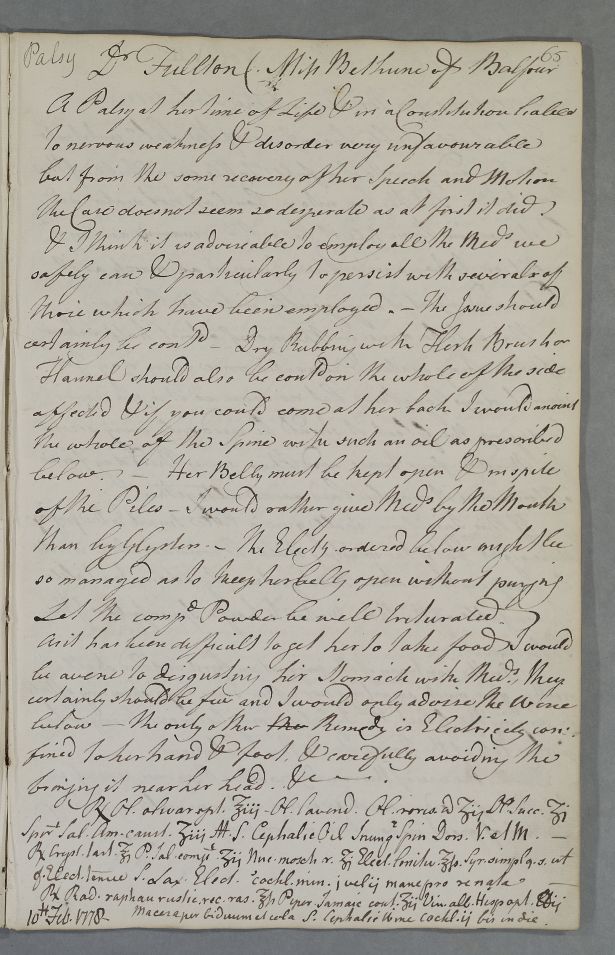 Palsy Dr. Fullton (. Miss Bethune of Balfour 65
A Palsy at her time of Life & in a Constitution liable
to nervous weakness & disorder very unfavourable
but from the some recovery of her speech and Motion
the Case does not seem so desperate as at first it did.
& I think it is adviseable to employ all the Meds we
safely can & particularly to persist with several of
those which have been employed. – The Issue should
certainly be contd – Dry Rubbing with Flesh Brush or
Flannel should also be contd on the whole of the side
affected & if you could come at her back I would anoint
the whole of the Spine with such an oil as prescribed
below. – Her Belly must be kept open & in spite
of the Piles – I would rather give Meds by the Mouth
than by Glysters. – The Electy ordered below might be
so managed as to keep her belly open without purging
Let the compd Powder be well triturated.
As it has been difficult to get her to take food I would
be averse to disgusting her Stomach with Meds. they
certainly should be few and I would only advise the Wine
below – the only other the Remedy is Electricity con:
fined to her hand & foot. & carefully avoiding the
bringing it near her head. &c
℞ Ol. olivar. opt. ʒiij. Ol. lavend. Ol. rorismar. ʒij Ol. Succ. ʒj
Sprt Sal. Am. caust. ʒiij ft. S. Cephalic Oil Inung Spin Dors. V. et M. –
℞ Cryst. tart. ʒj P. Jal. compt. ʒij Nuc. mosch. r. ʒj Elect. lenitiv. ʒss. Syr. simpl. q. s. ut
f. Elect. tenue S. Lax. Elect. cochl. min. j vel ij mane pro re nata
℞ Rad. raphan rustic. rec. ras. ʒss Piper. Jamaic. cont. ʒij Vin. alb. Hisp. opt. ℔ij
10th Feb. 1778 Macera per biduum et cola S. Cephalic Wine cochl. ij bis in die.